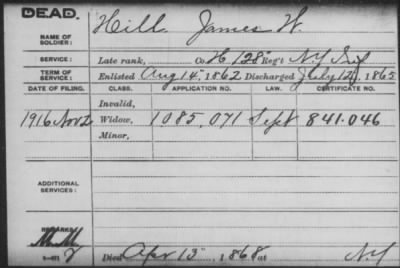 DEAD.
NAME OF SOLDIER: Hill James W.
SERVICE: Late rank, Co. H, 128" Reg't NY Inf
TERM OF SERVICE: Enlisted Aug 14, 1862 Discharged July 12, 1865
DATE OF FILING. CLASS. APPLICATION NO. LAW. CERTIFICATE NO.
Invalid,
1916 Nov 2 Widow, 1085,071 Sept 841.046
Minor,
ADDITIONAL SERVICES:
REMARKS:
Died Apr 13", 1868 at NY